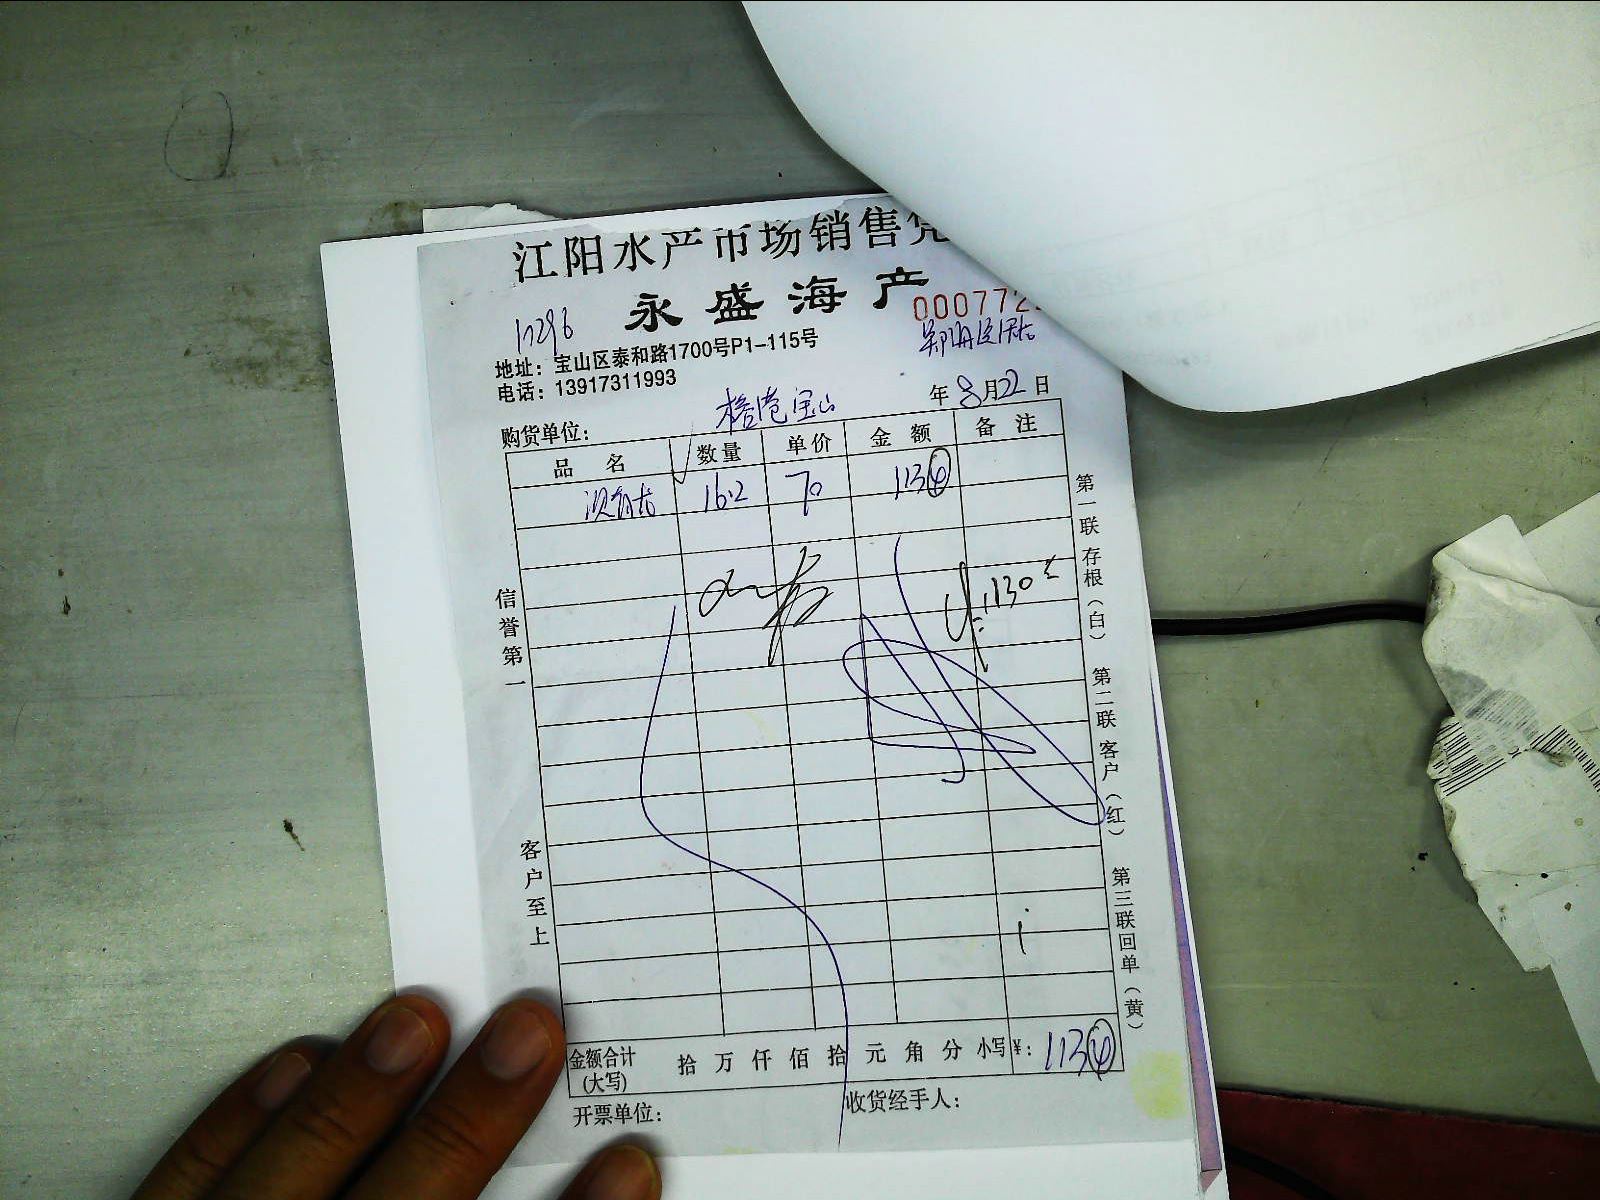 江阳水产市场销售凭
永盛海产
000772
17296
地址：宝山区泰和路1700号P1-115号
电话：13917311993
年8月22日
购货单位：宝山
品 名 数量 单价 金 额 备 注
16.2 70 1134
1130
信誉第一
客户至上
第一联 存根（白）
第二联 客户（红）
第三联 回单（黄）
金额合计(大写) 拾 万 仟 佰 拾 元 角 分 小写¥：1134
开票单位： 收货经手人：